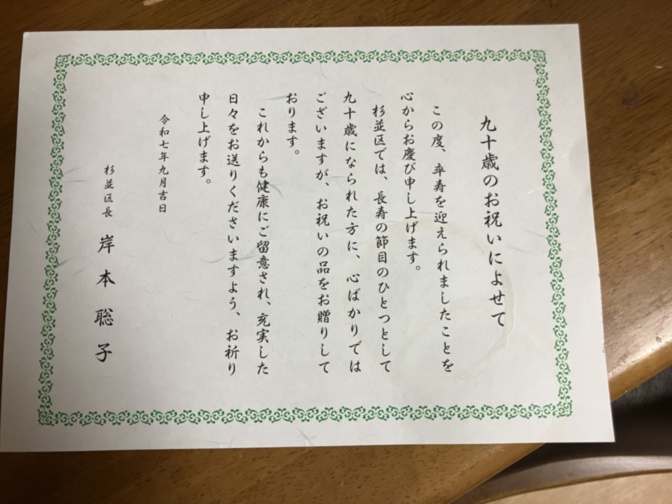 九十歳のお祝いによせて
この度、卒寿を迎えられましたことを
心からお慶び申し上げます。
杉並区では、長寿の節目のひとつとして
九十歳になられた方に、心ばかりでは
ございますが、お祝いの品をお贈りして
おります。
これからも健康にご留意され、充実した
日々をお送りくださいますよう、お祈り
申し上げます。
令和七年九月吉日
杉並区長 岸本聡子